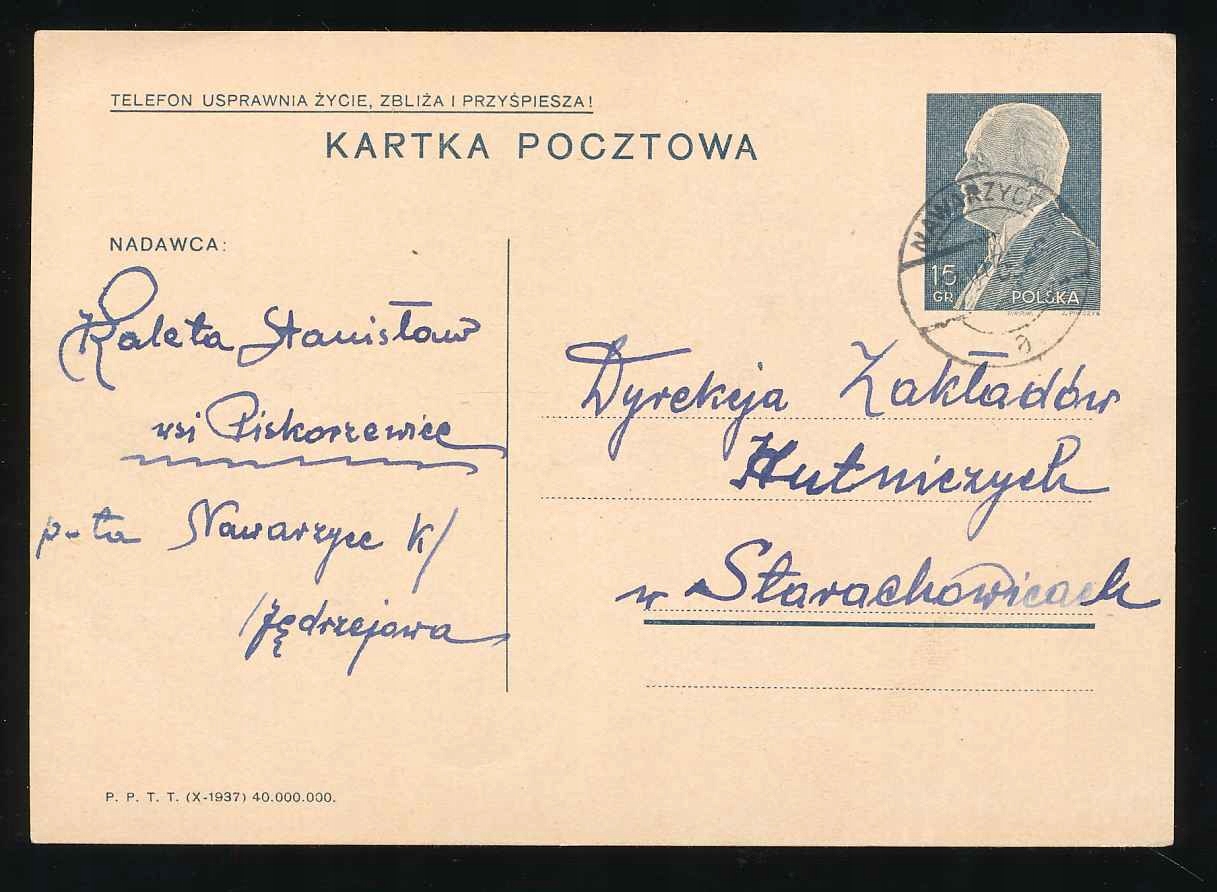 TELEFON USPRAWNIA ŻYCIE, ZBLIŻA I PRZYŚPIESZA!
KARTKA POCZTOWA
NAWARZYCE
15
GR.
POLSKA
a
NADAWCA:
Kaleta Stanisław
wsi Piskorzewiec
p-ta Nawarzyce k/
/Jędrzejowa
Dyrekcja Zakładów
Hutniczych
w Starachowicach
P. P. T. T. (X-1937) 40.000.000.